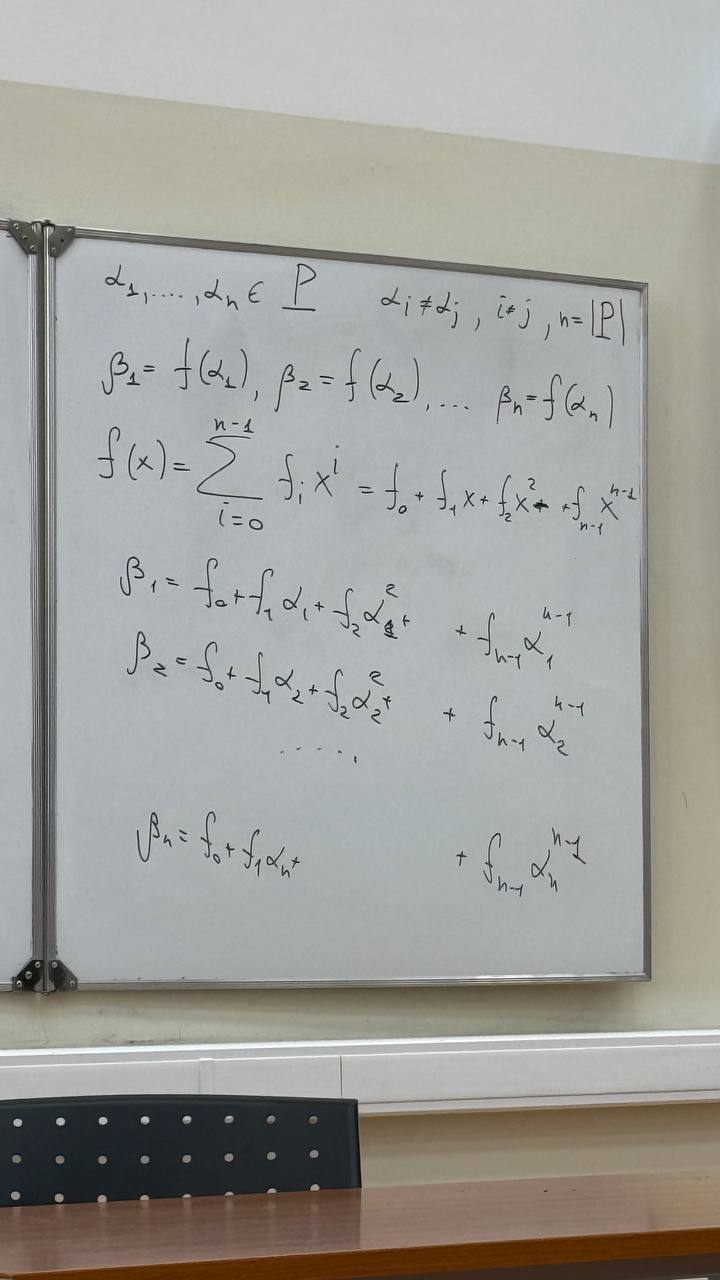 α₁, ...., αₙ ∈ P αᵢ ≠ αⱼ, i≠j, n=|P|
β₁ = f(α₁), β₂ = f(α₂), ... βₙ = f(αₙ)
f(x) = ∑_{i=0}^{n-1} fᵢ xⁱ = f₀ + f₁x + f₂x² + + f_{n-1} x^{n-1}
β₁ = f₀ + f₁α₁ + f₂α₁² + + f_{n-1} α₁^{n-1}
β₂ = f₀ + f₁α₂ + f₂α₂² + + f_{n-1} α₂^{n-1}
.....
βₙ = f₀ + f₁αₙ + + f_{n-1} αₙ^{n-1}